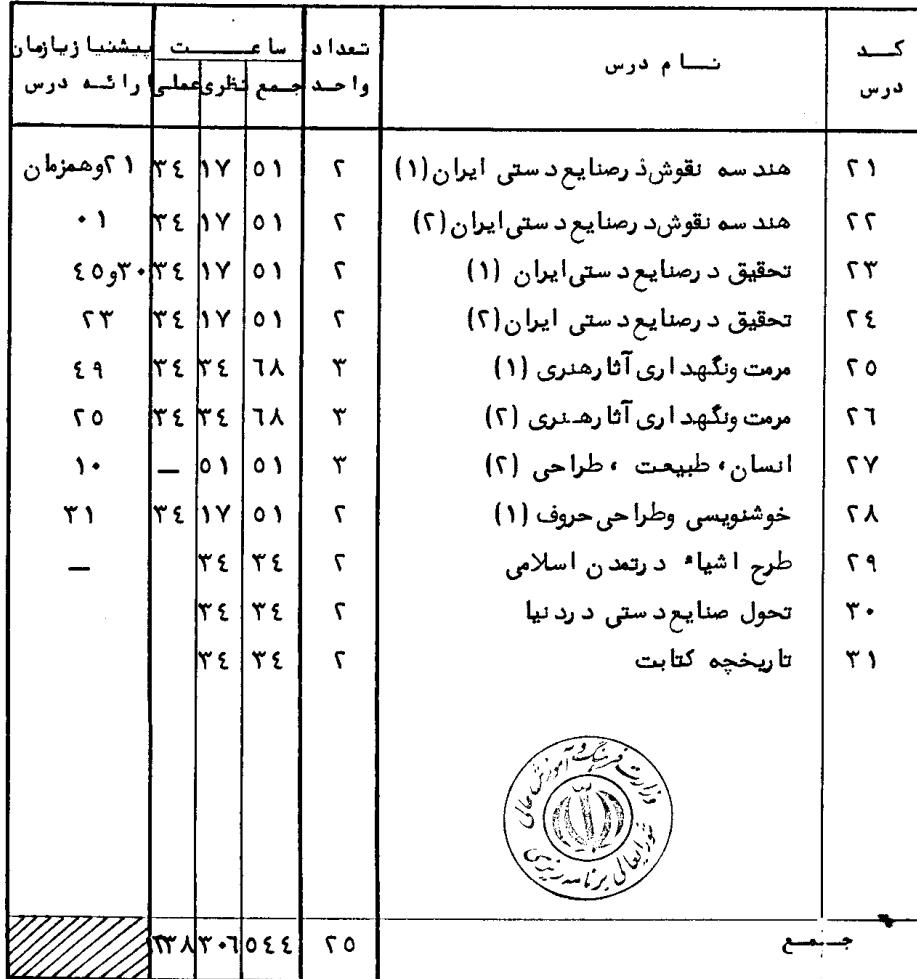 کد درس | نام درس | تعداد واحد | ساعت: جمع | نظری | عملی | پیشنیاز یا زمان ارائه درس
۲۱ | هندسه نقوش در صنایع دستی ایران (۱) | ۲ | ۵۱ | ۱۷ | ۳٤ | ۲۱ و همزمان
۲۲ | هندسه نقوش در صنایع دستی ایران (۲) | ۲ | ۵۱ | ۱۷ | ۳٤ | ۰۱
۲۳ | تحقیق در صنایع دستی ایران (۱) | ۲ | ۵۱ | ۱۷ | ۳٤ | ۳۰ و ٤۵
۲٤ | تحقیق در صنایع دستی ایران (۲) | ۲ | ۵۱ | ۱۷ | ۳٤ | ۲۳
۲۵ | مرمت ونگهداری آثار هنری (۱) | ۳ | ٦۸ | ۳٤ | ۳٤ | ٤۹
۲٦ | مرمت ونگهداری آثار هنری (۲) | ۳ | ٦۸ | ۳٤ | ۳٤ | ۲۵
۲۷ | انسان، طبیعت ، طراحی (۲) | ۳ | ۵۱ | ۵۱ | — | ۱۰
۲۸ | خوشنویسی وطراحی حروف (۱) | ۲ | ۵۱ | ۱۷ | ۳٤ | ۳۱
۲۹ | طرح اشیاء در تمدن اسلامی | ۲ | ۳٤ | ۳٤ | | —
۳۰ | تحول صنایع دستی در دنیا | ۲ | ۳٤ | ۳٤
۳۱ | تاریخچه کتابت | ۲ | ۳٤ | ۳٤
وزارت فرهنگ و آموزش عالی
شورایعالی برنامه ریزی
جمع | ۲۵ | ۵٤٤ | ۳۰٦ | ۲۳۸